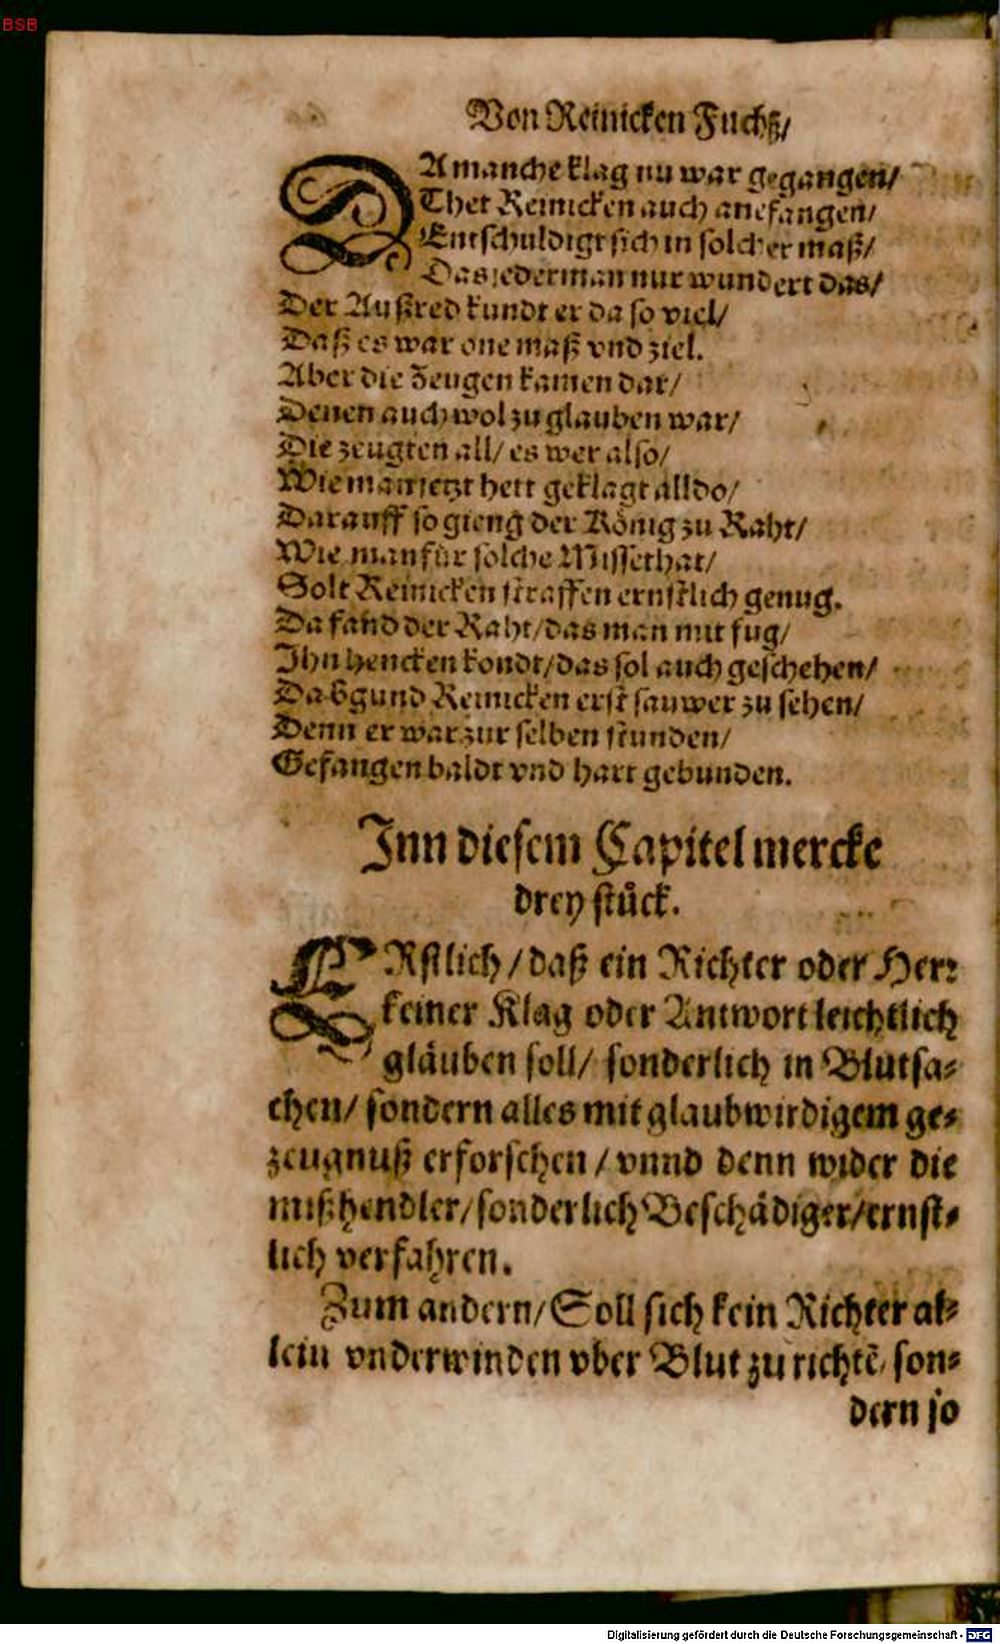 BSB
Von Reinicken Fuchß/
DA manche klag nu war gegangen/
Thet Reinicken auch anefangen/
Entschuldigt sich in solcher maß/
Das jederman nur wundert das/
Der Außred kundt er da so viel/
Daß es war one maß vnd ziel.
Aber die Zeugen kamen dar/
Denen auch wol zu glauben war/
Die zeugten all/ es wer also/
Wie man jetzt hett geklagt alldo/
Darauff so gieng der König zu Raht/
Wie man für solche Missethat/
Solt Reinicken straffen ernstlich genug.
Da fand der Raht/ das man mit fug/
Ihn hencken kondt/ das sol auch geschehen/
Da bgund Reinicken erst sauwer zu sehen/
Denn er war zur selben stunden/
Gefangen baldt vnd hart gebunden.
Inn diesem Capitel mercke
drey stück.
ERstlich/ daß ein Richter oder Herr
keiner Klag oder Antwort leichtlich
gläuben soll/ sonderlich in Blutsa-
chen/ sondern alles mit glaubwirdigem ge-
zeugnuß erforschen/ vnnd denn wider die
mißhendler/ sonderlich Beschädiger/ ernst-
lich verfahren.
Zum andern/ Soll sich kein Richter al-
lein vnderwinden vber Blut zu richtē/ son-
dern so
Digitalisierung gefördert durch die Deutsche Forschungsgemeinschaft - DFG